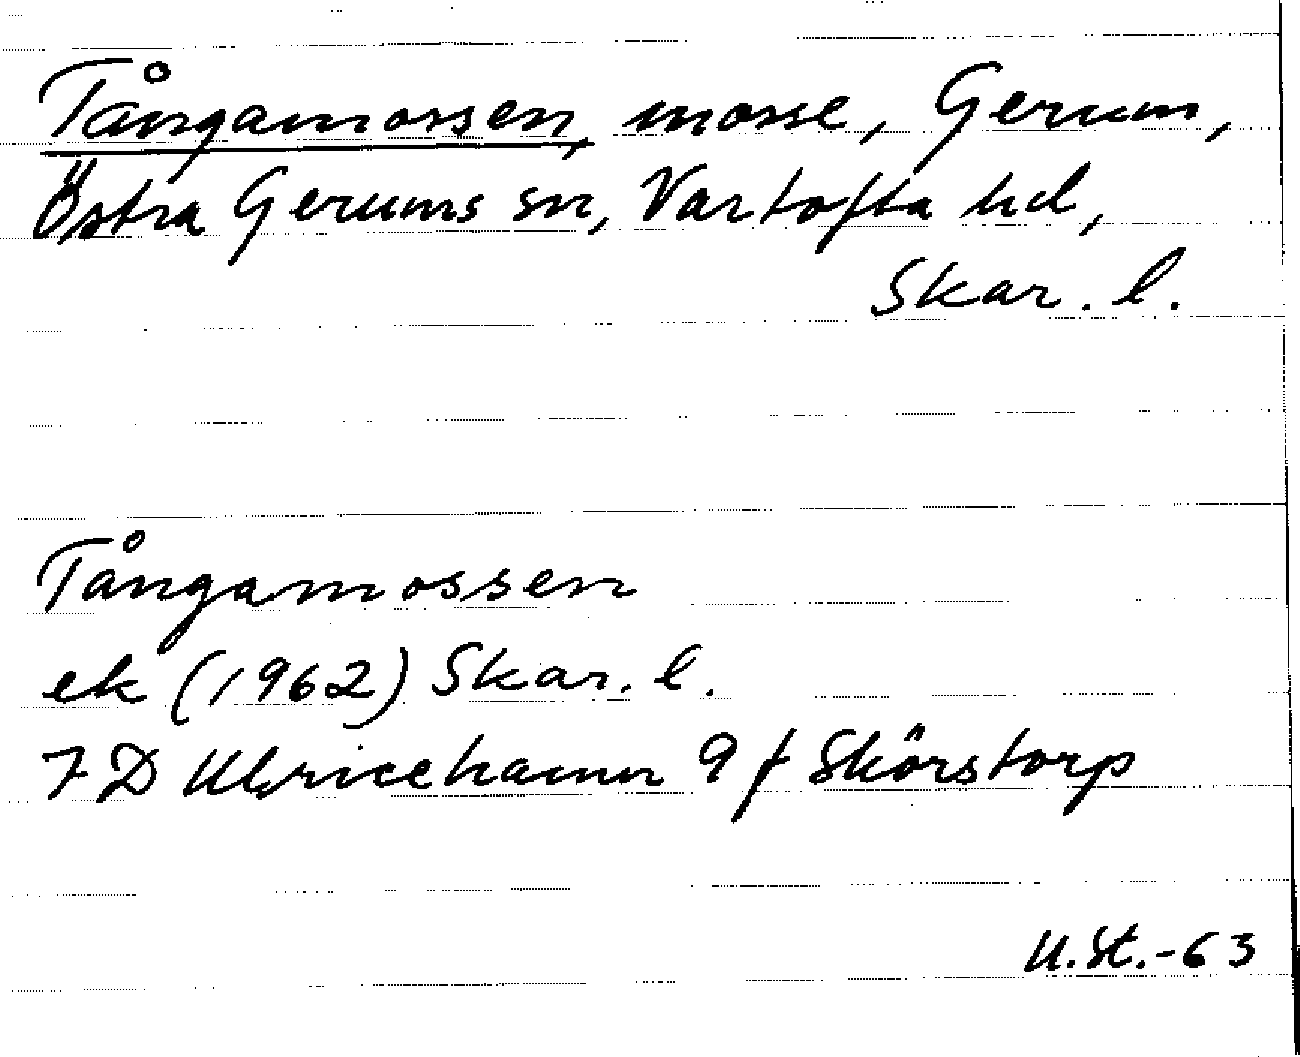 Tångamossen, mosse, Gerum,
Östra Gerums sn, Vartofta hd,
Skar. l.
Tångamossen
ek (1962) Skar. l.
7 D Ulricehamn 9 f Skörstorp
U.St.-63